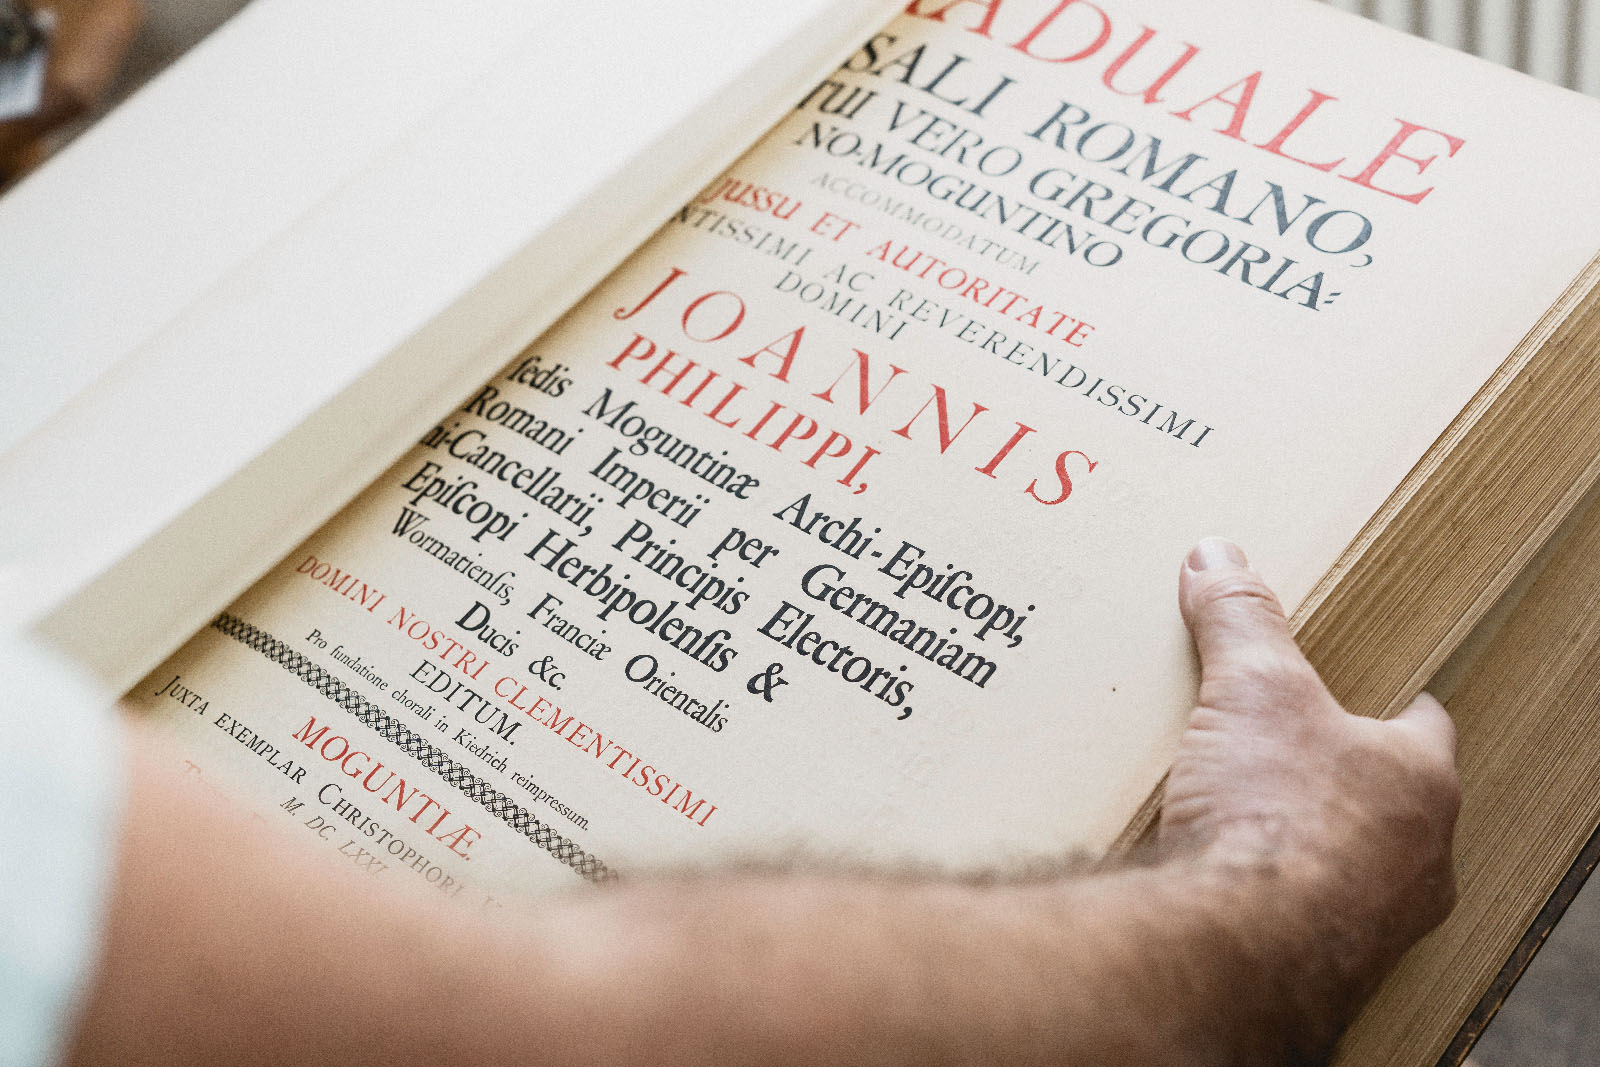 ADUALE
SALI ROMANO,
TUI VERO GREGORIA⸗
NO-MOGUNTINO
ACCOMMODATUM
JUSSU ET AUTORITATE
NTISSIMI AC REVERENDISSIMI
DOMINI
JOANNIS
PHILIPPI,
ſedis Moguntinæ Archi-Epiſcopi,
Romani Imperii per Germaniam
ni-Cancellarii, Principis Electoris,
Epiſcopi Herbipolenſis &
Wormatienſis, Franciæ Orientalis
Ducis &c.
DOMINI NOSTRI CLEMENTISSIMI
EDITUM.
Pro fundatione chorali in Kiedrich reimpressum.
MOGUNTIÆ.
JUXTA EXEMPLAR CHRISTOPHORI
M. DC. LXXI